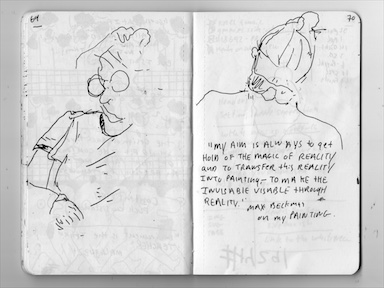 64
70
"MY AIM IS ALWAYS to get
HOLD OF THE MAGIC OF REALITY
AND TO TRANSFER THIS REALITY
INTO PAINTING – TO MAKE THE
INVISIBLE VISABLE THROUGH
REALITY."
MAX BECKMAN
ON MY PAINTING